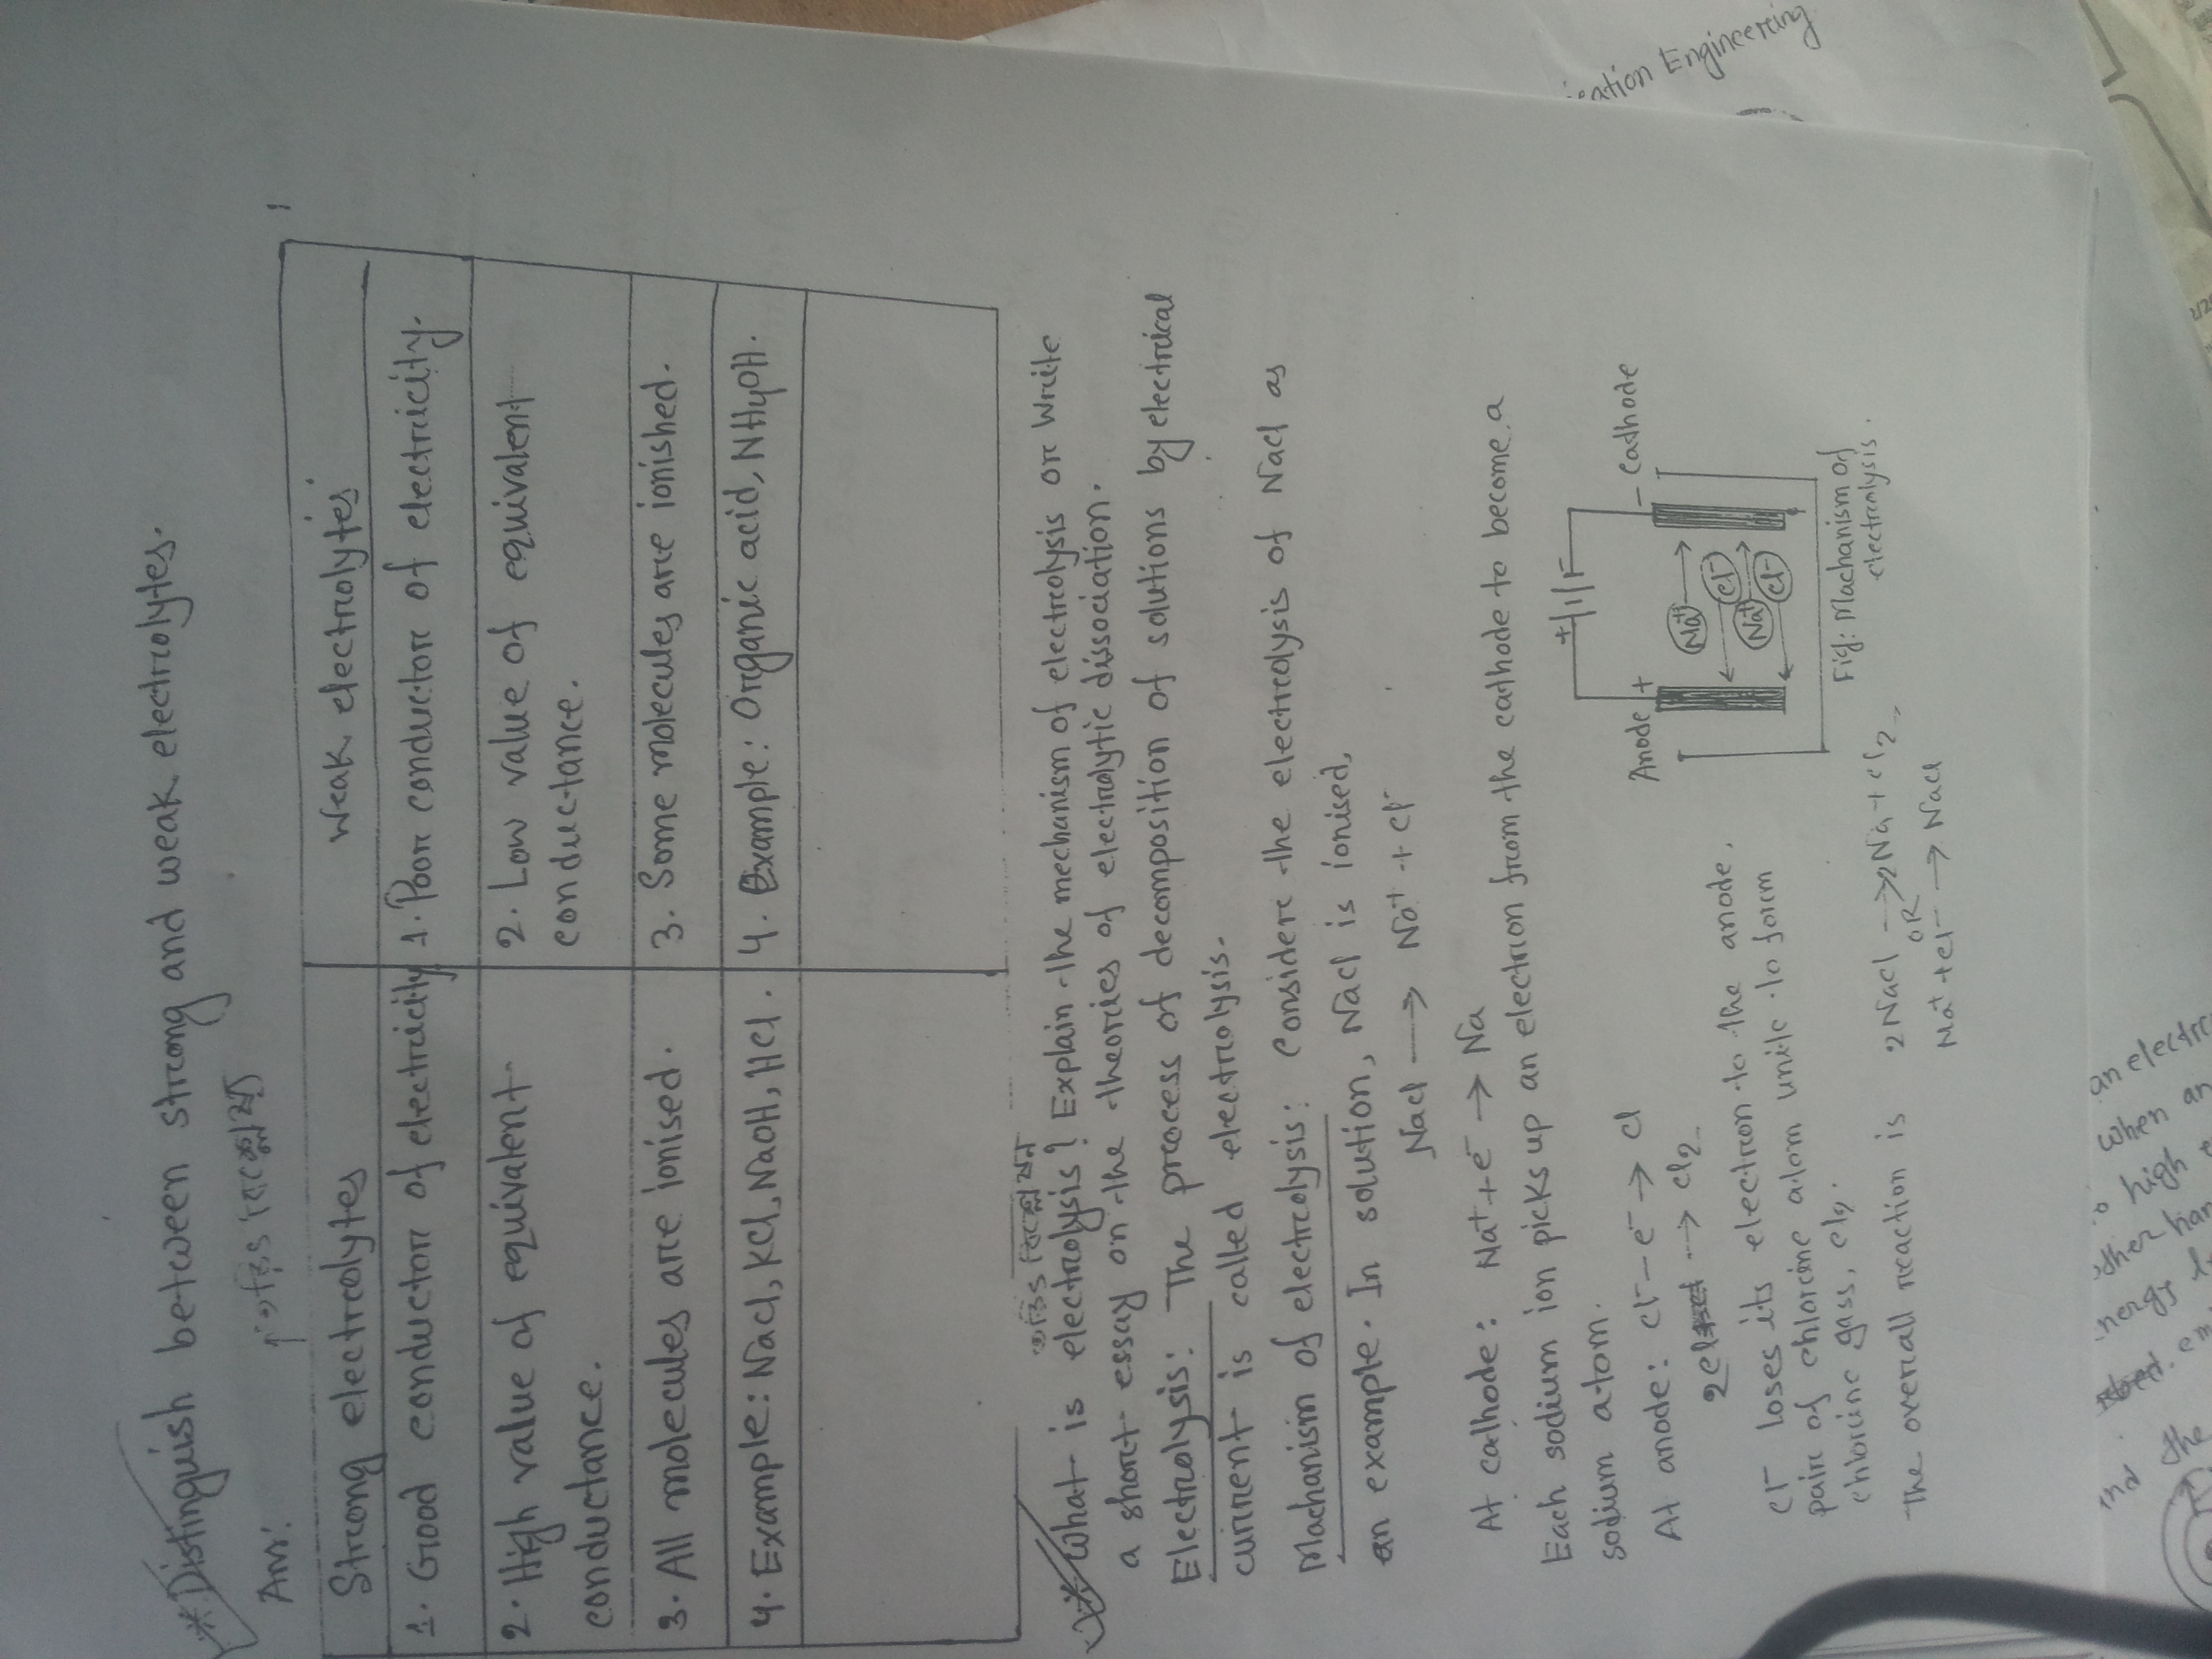 * Distinguish between strong and weak electrolytes.
Ans:
Strong electrolytes
Weak electrolytes
1. Good conductor of electricity
1. Poor conductor of electricity.
2. High value of equivalent
conductance.
2. Low value of equivalent
conductance.
3. All molecules are ionised.
3. Some molecules are ionished.
4. Example: NaCl, KCl, NaOH, HCl.
4. Example: Organic acid, NH4OH.
* What is electrolysis? Explain the mechanism of electrolysis or Write
a short essay on the theories of electrolytic dissociation.
Electrolysis: The process of decomposition of solutions by electrical
current is called electrolysis.
Machanism of electrolysis: Consider the electrolysis of NaCl as
an example. In solution, NaCl is ionised,
NaCl → Na+ + Cl-
At cathode: Na+ + e- → Na
Each sodium ion picks up an electron from the cathode to become a
sodium atom.
At anode: Cl- - e- → Cl
2Cl → Cl2
Cl- loses its electron to the anode.
pair of chlorine atom unite to form
chlorine gass, Cl2.
The overall reaction is 2NaCl → 2Na + Cl2
OR
Na+ + Cl- → NaCl
Anode +
- Cathode
Na+
Cl-
Na+
Cl-
Fig: Machanism of
electrolysis.
ation Engineering
an electr
when an
high
other han
energy
the